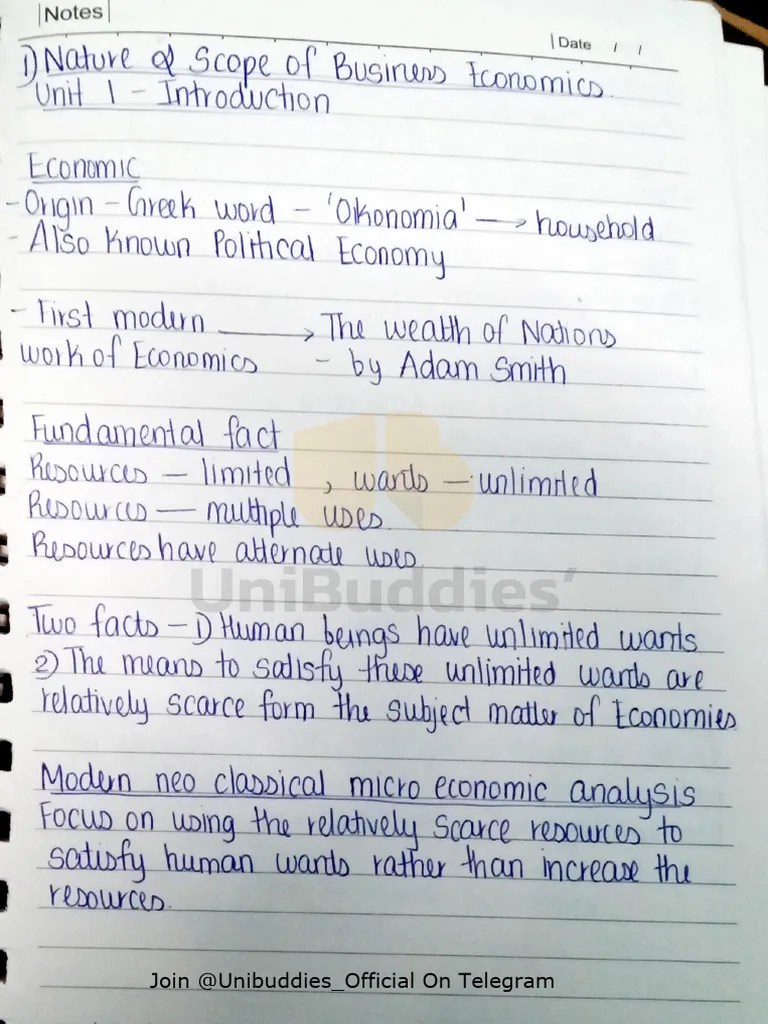 Notes
Date / /
1) Nature & Scope of Business Economics.
Unit 1 - Introduction
Economic
- Origin - Greek word - 'Oikonomia' → household
- Also known Political Economy
- First modern → The wealth of Nations
work of Economics - by Adam Smith
Fundamental fact
Resources - limited , wants - unlimited
Resources - multiple uses.
Resources have alternate uses.
UniBuddies'
Two facts - 1) Human beings have unlimited wants
2) The means to satisfy these unlimited wants are
relatively scarce form the subject matter of Economies.
Modern neo classical micro economic analysis
Focus on using the relatively scarce resources to
satisfy human wants rather than increase the
resources.
Join @Unibuddies_Official On Telegram